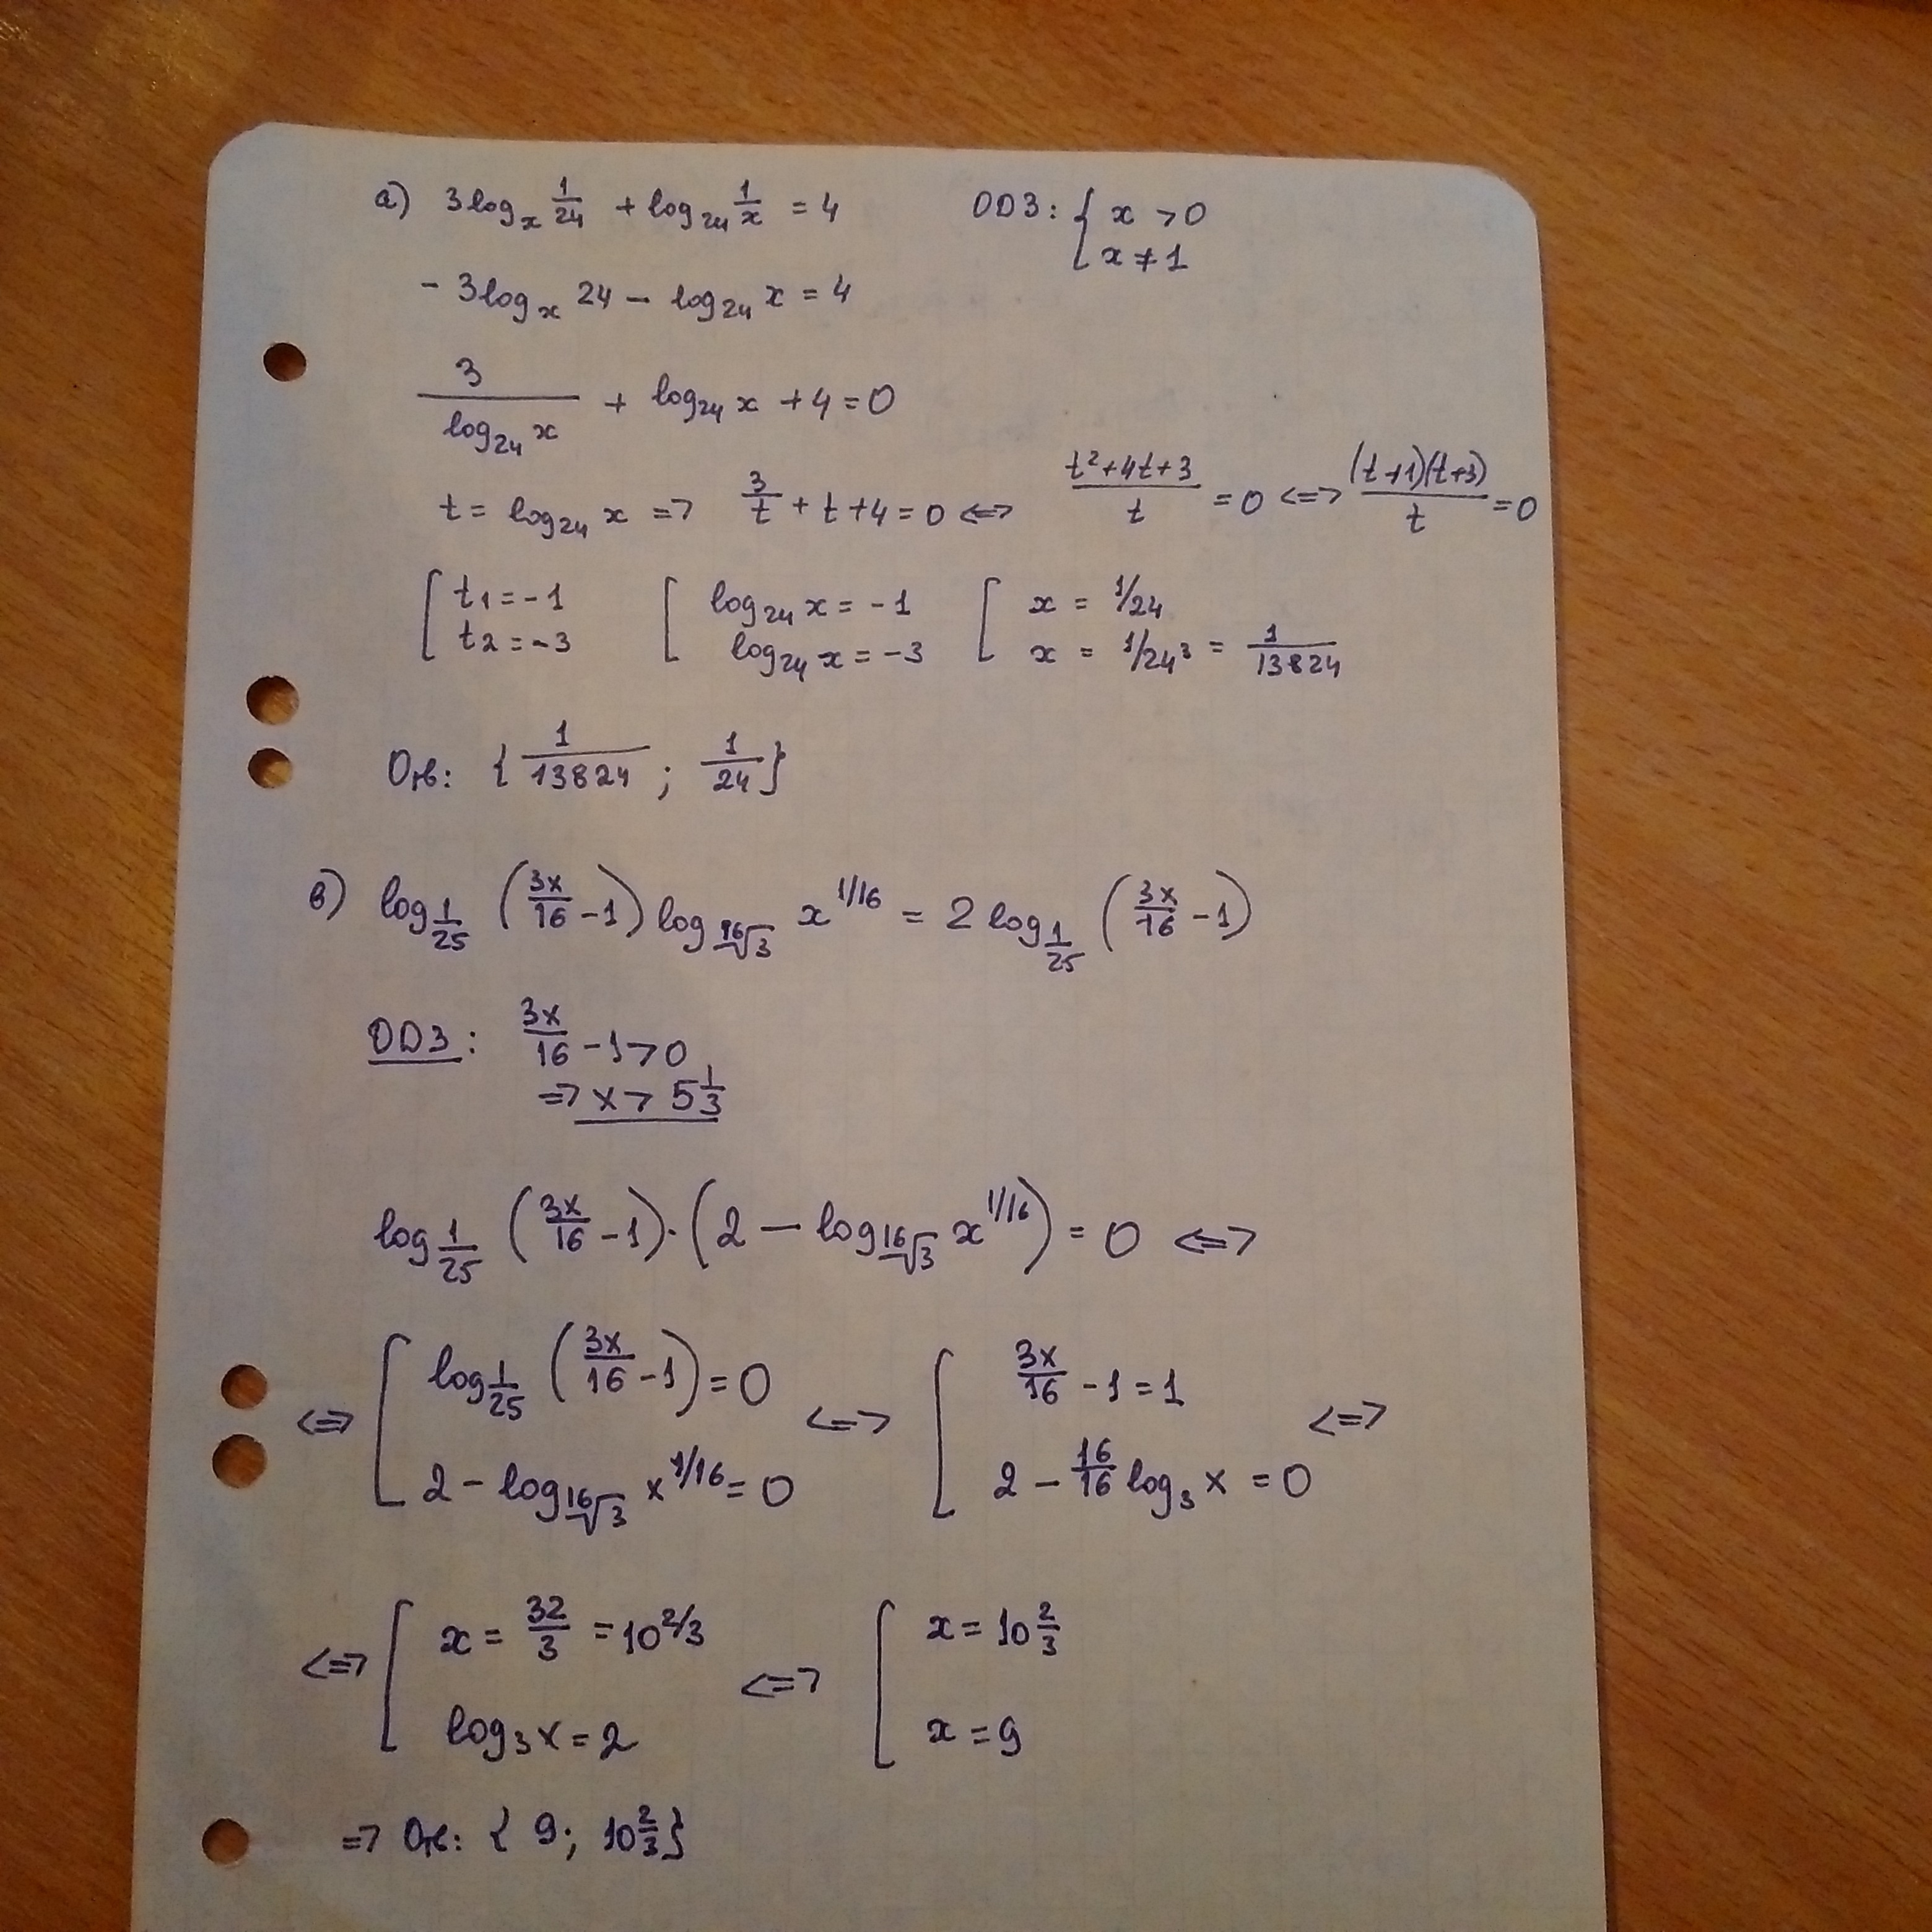 а) 3log_x 1/24 + log_24 1/x = 4     ОДЗ: { x > 0
x ≠ 1
- 3log_x 24 - log_24 x = 4
3/(log_24 x) + log_24 x + 4 = 0
t = log_24 x => 3/t + t + 4 = 0 <=> (t² + 4t + 3)/t = 0 <=> ((t+1)(t+3))/t = 0
[ t1 = -1     [ log_24 x = -1     [ x = 1/24
t2 = -3     log_24 x = -3     x = 1/24³ = 1/13824
Отв: { 1/13824 ; 1/24 }
в) log_{1/25} (3x/16 - 1) log_{¹⁶√3} x^{1/16} = 2 log_{1/25} (3x/16 - 1)
ОДЗ: 3x/16 - 1 > 0
=> x > 5 1/3
log_{1/25} (3x/16 - 1) · (2 - log_{¹⁶√3} x^{1/16}) = 0 <=>
<=> [ log_{1/25} (3x/16 - 1) = 0 <=> [ 3x/16 - 1 = 1 <=>
2 - log_{¹⁶√3} x^{1/16} = 0     2 - 16/16 log_3 x = 0
<=> [ x = 32/3 = 10 2/3 <=> [ x = 10 2/3
log_3 x = 2     x = 9
=> Отв: { 9; 10 2/3 }